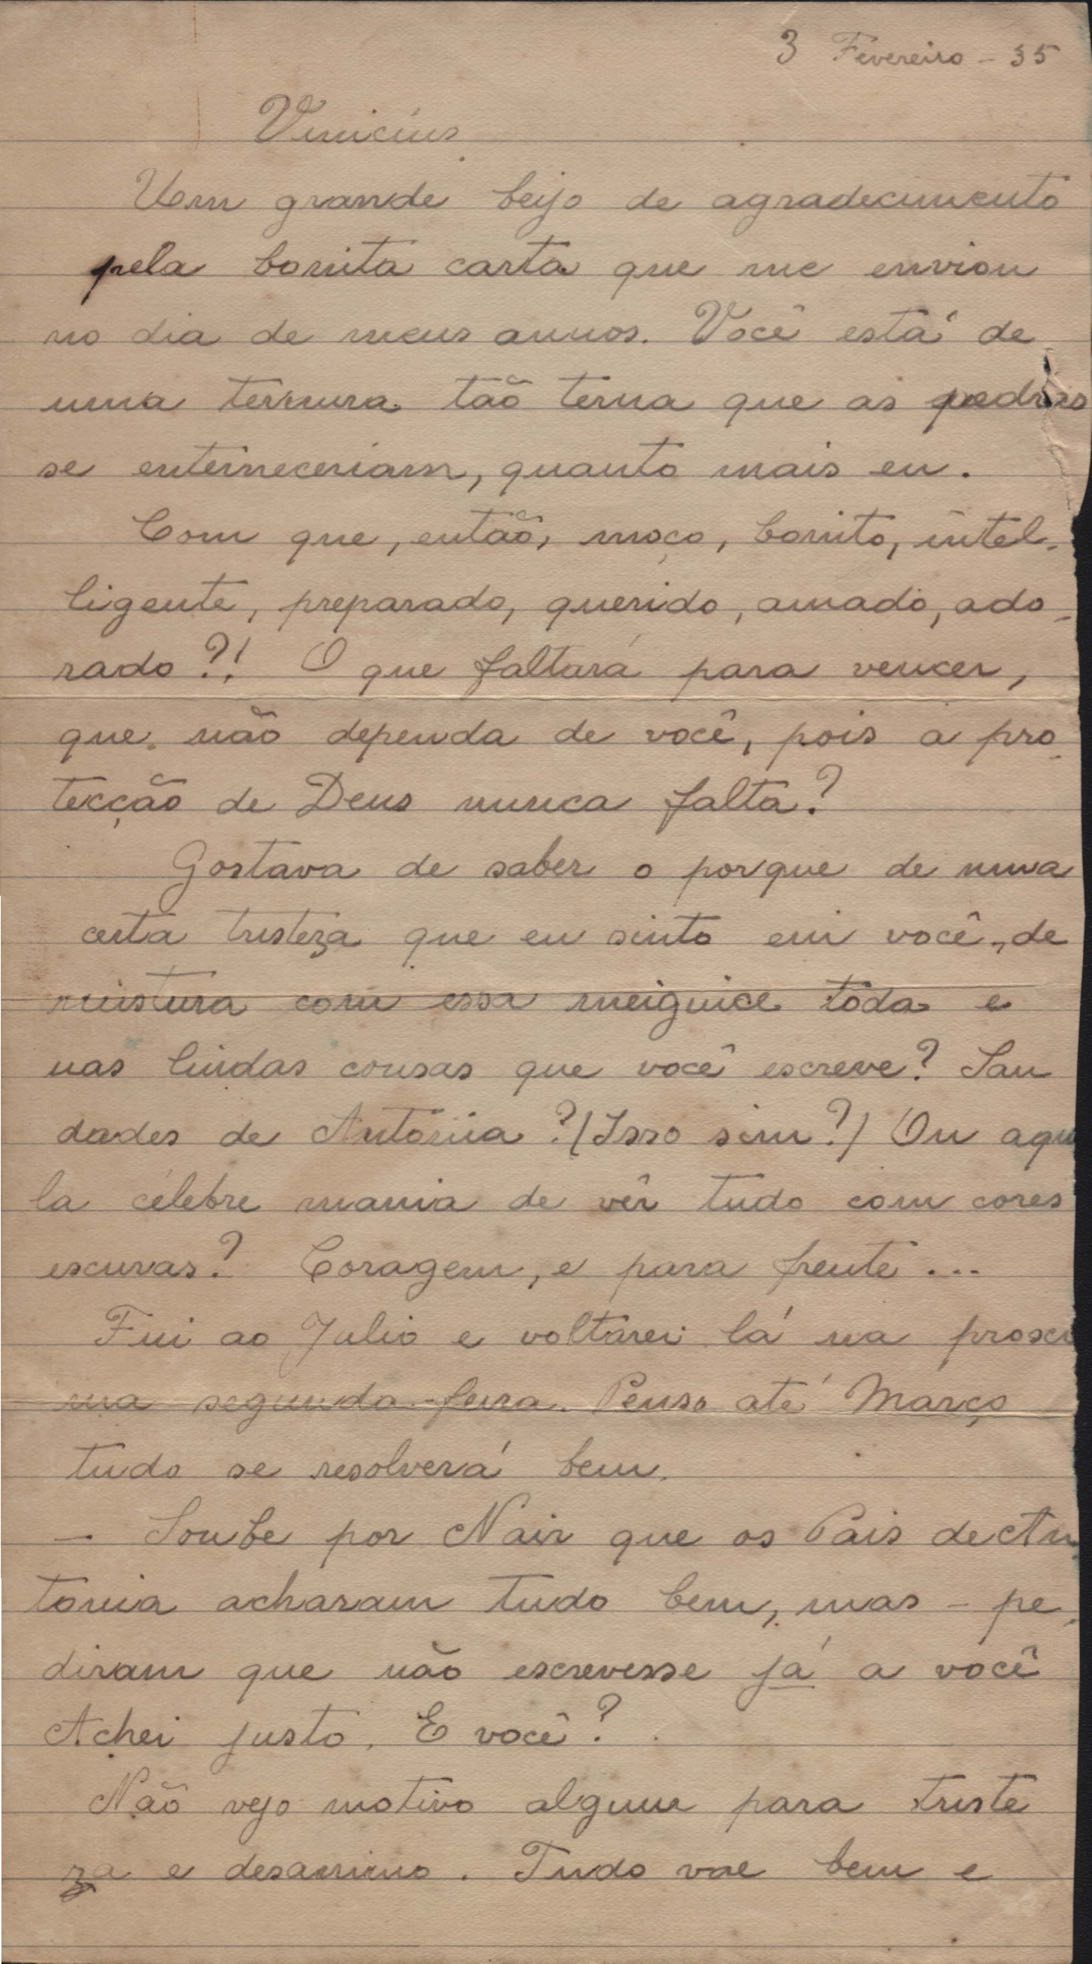 3 Fevereiro - 35
Vinicius
Um grande beijo de agradecimento
pela bonita carta que me enviou
no dia de meus annos. Você está de
uma ternura tão terna que as pedras
se enterneceriam, quanto mais eu.
Com que, então, moço, bonito, intel-
ligente, preparado, querido, amado, ado-
rado?! O que faltará para vencer,
que não dependa de você, pois a pro-
tecção de Deus nunca falta?
Gostava de saber o porque de uma
certa tristeza que eu sinto em você, de
mistura com essa meiguice toda e
nas lindas cousas que você escreve? Sau
dades de Antonia? (Isso sim?) Ou aque
la célebre mania de vêr tudo com cores
escuras? Coragem, e para frente ...
Fui ao Julio e voltarei lá na proxi
ma segunda-feira. Penso até Março
tudo se resolverá bem.
- Soube por Nair que os Pais de An
tonia acharam tudo bem, mas - pe-
diram que não escrevesse já a você
Achei justo. E você?
Não vejo motivo algum para triste
za e desanimo. Tudo vae bem e